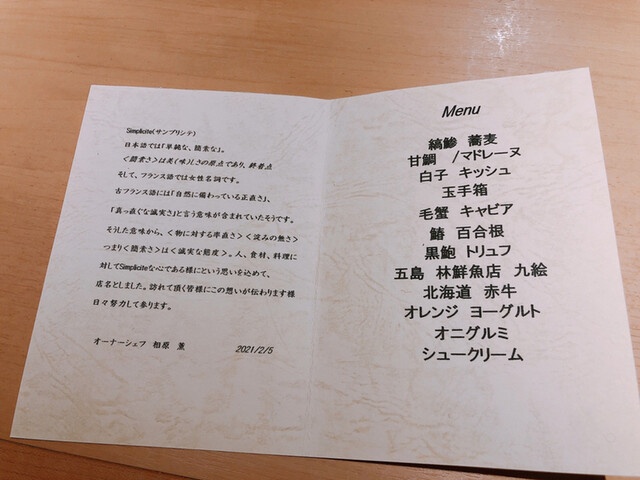 Simplicite(サンプリシテ)
日本語では「単純な、簡素な」。
<簡素さ>は美(味)しさの原点であり、終着点
そして、フランス語では女性名詞です。
古フランス語には「自然に備わっている正直さ」、
「真っ直ぐな誠実さ」と言う意味が含まれていたそうです。
そうした意味から、<物に対する率直さ><淀みの無さ>
つまり<簡素さ>は<誠実な態度>。人、食材、料理に
対してSimpliciteな心である様にという思いを込めて、
店名としました。訪れて頂く皆様にこの想いが伝わります様
日々努力して参ります。
オーナーシェフ 相原 薫 2021/2/5
Menu
縞鯵 蕎麦
甘鯛 /マドレーヌ
白子 キッシュ
玉手箱
毛蟹 キャビア
鰆 百合根
黒鮑 トリュフ
五島 林鮮魚店 九絵
北海道 赤牛
オレンジ ヨーグルト
オニグルミ
シュークリーム